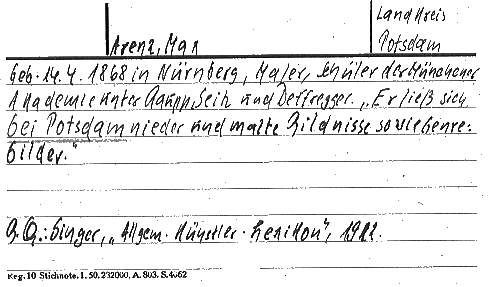 Landkreis
Arenz, Max
Potsdam
Geb. 14.4. 1868 in Nürnberg, Maler, Schüler der Münchener
Akademie unter Gaupp, Seitz und Defregger. „Er ließ sich
bei Potsdam nieder und malte Bildnisse sowie Genre-
bilder."
Singer, „Allgem. Künstler-Lexikon",
Reg. 10 Stichnote. 1. 50, 232000, A. 803. S.